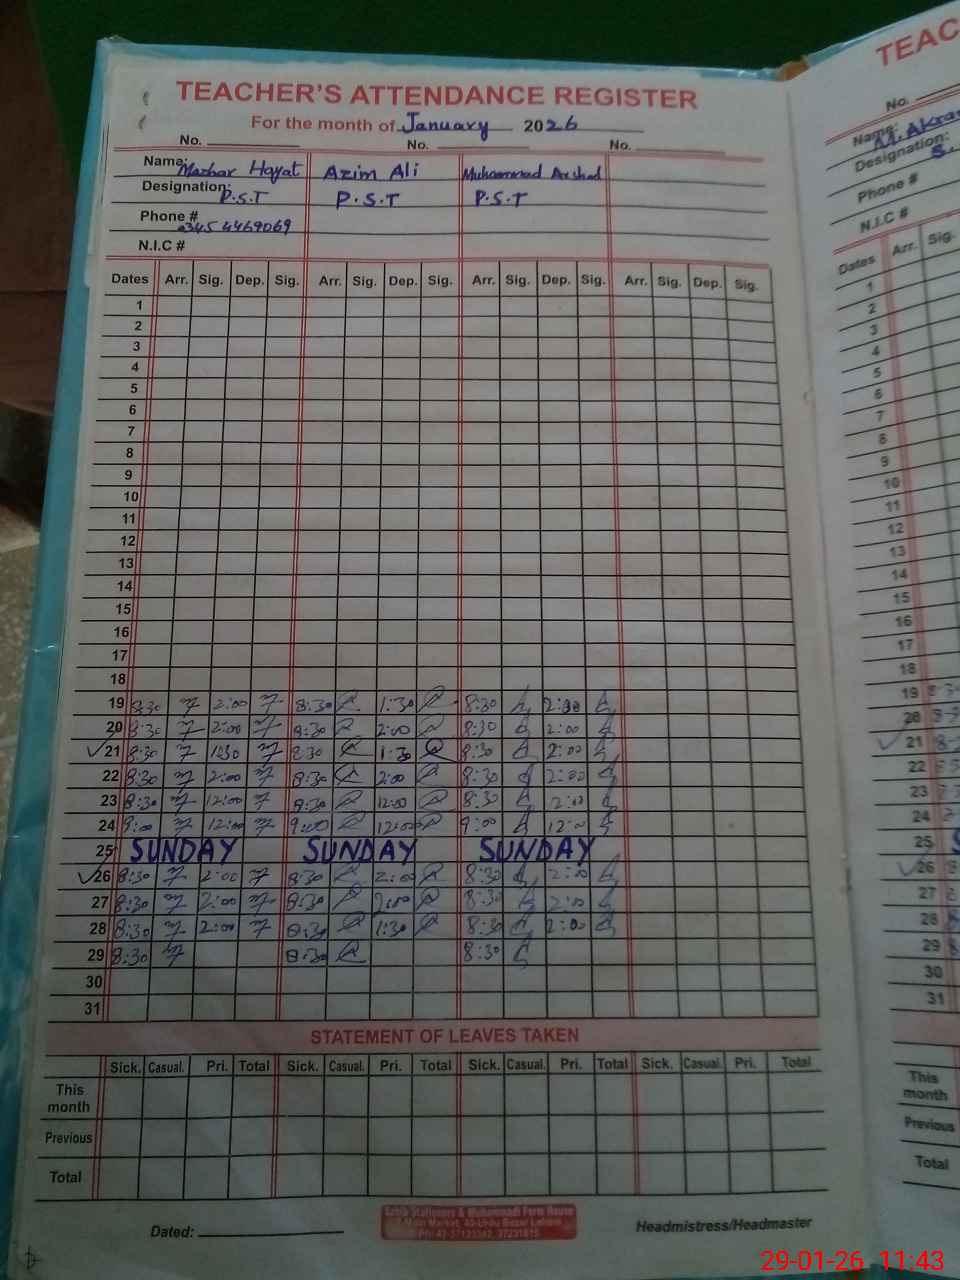 TEACHER'S ATTENDANCE REGISTER
For the month of January 2026
No. No. No.
Name: Mazhar Hayat Azim Ali Muhammad Arshad
Designation: P.S.T P.S.T P.S.T
Phone # 0345 4469069
N.I.C #
Dates Arr. Sig. Dep. Sig. Arr. Sig. Dep. Sig. Arr. Sig. Dep. Sig. Arr. Sig. Dep. Sig.
1
2
3
4
5
6
7
8
9
10
11
12
13
14
15
16
17
18
19 8:30 2:00 8:30 1:30 8:30 2:00
20 8:30 2:00 8:30 2:00 8:30 2:00
21 8:30 1:30 8:30 1:30 8:30 2:00
22 8:30 2:00 8:30 2:00 8:30 2:00
23 8:30 12:00 8:30 12:00 8:30 12:00
24 9:00 12:00 9:00 12:00 9:00 12:00
25 SUNDAY SUNDAY SUNDAY
26 8:30 2:00 8:30 2:00 8:30 2:00
27 8:30 2:00 8:30 2:00 8:30 2:00
28 8:30 2:00 8:30 1:30 8:30 2:00
29 8:30 8:30 8:30
30
31
STATEMENT OF LEAVES TAKEN
Sick. Casual. Pri. Total Sick. Casual. Pri. Total Sick. Casual. Pri. Total Sick. Casual. Pri. Total
This month
Previous
Total
Dated:
Headmistress/Headmaster
TEAC
No.
Name: M. Akra
Designation: S.
Phone #
N.I.C #
Dates Arr. Sig.
1
2
3
4
5
6
7
8
9
10
11
12
13
14
15
16
17
18
19
20
21
22
23
24
25
26
27
28
29
30
31
This month
Previous
Total
29-01-26 11:43